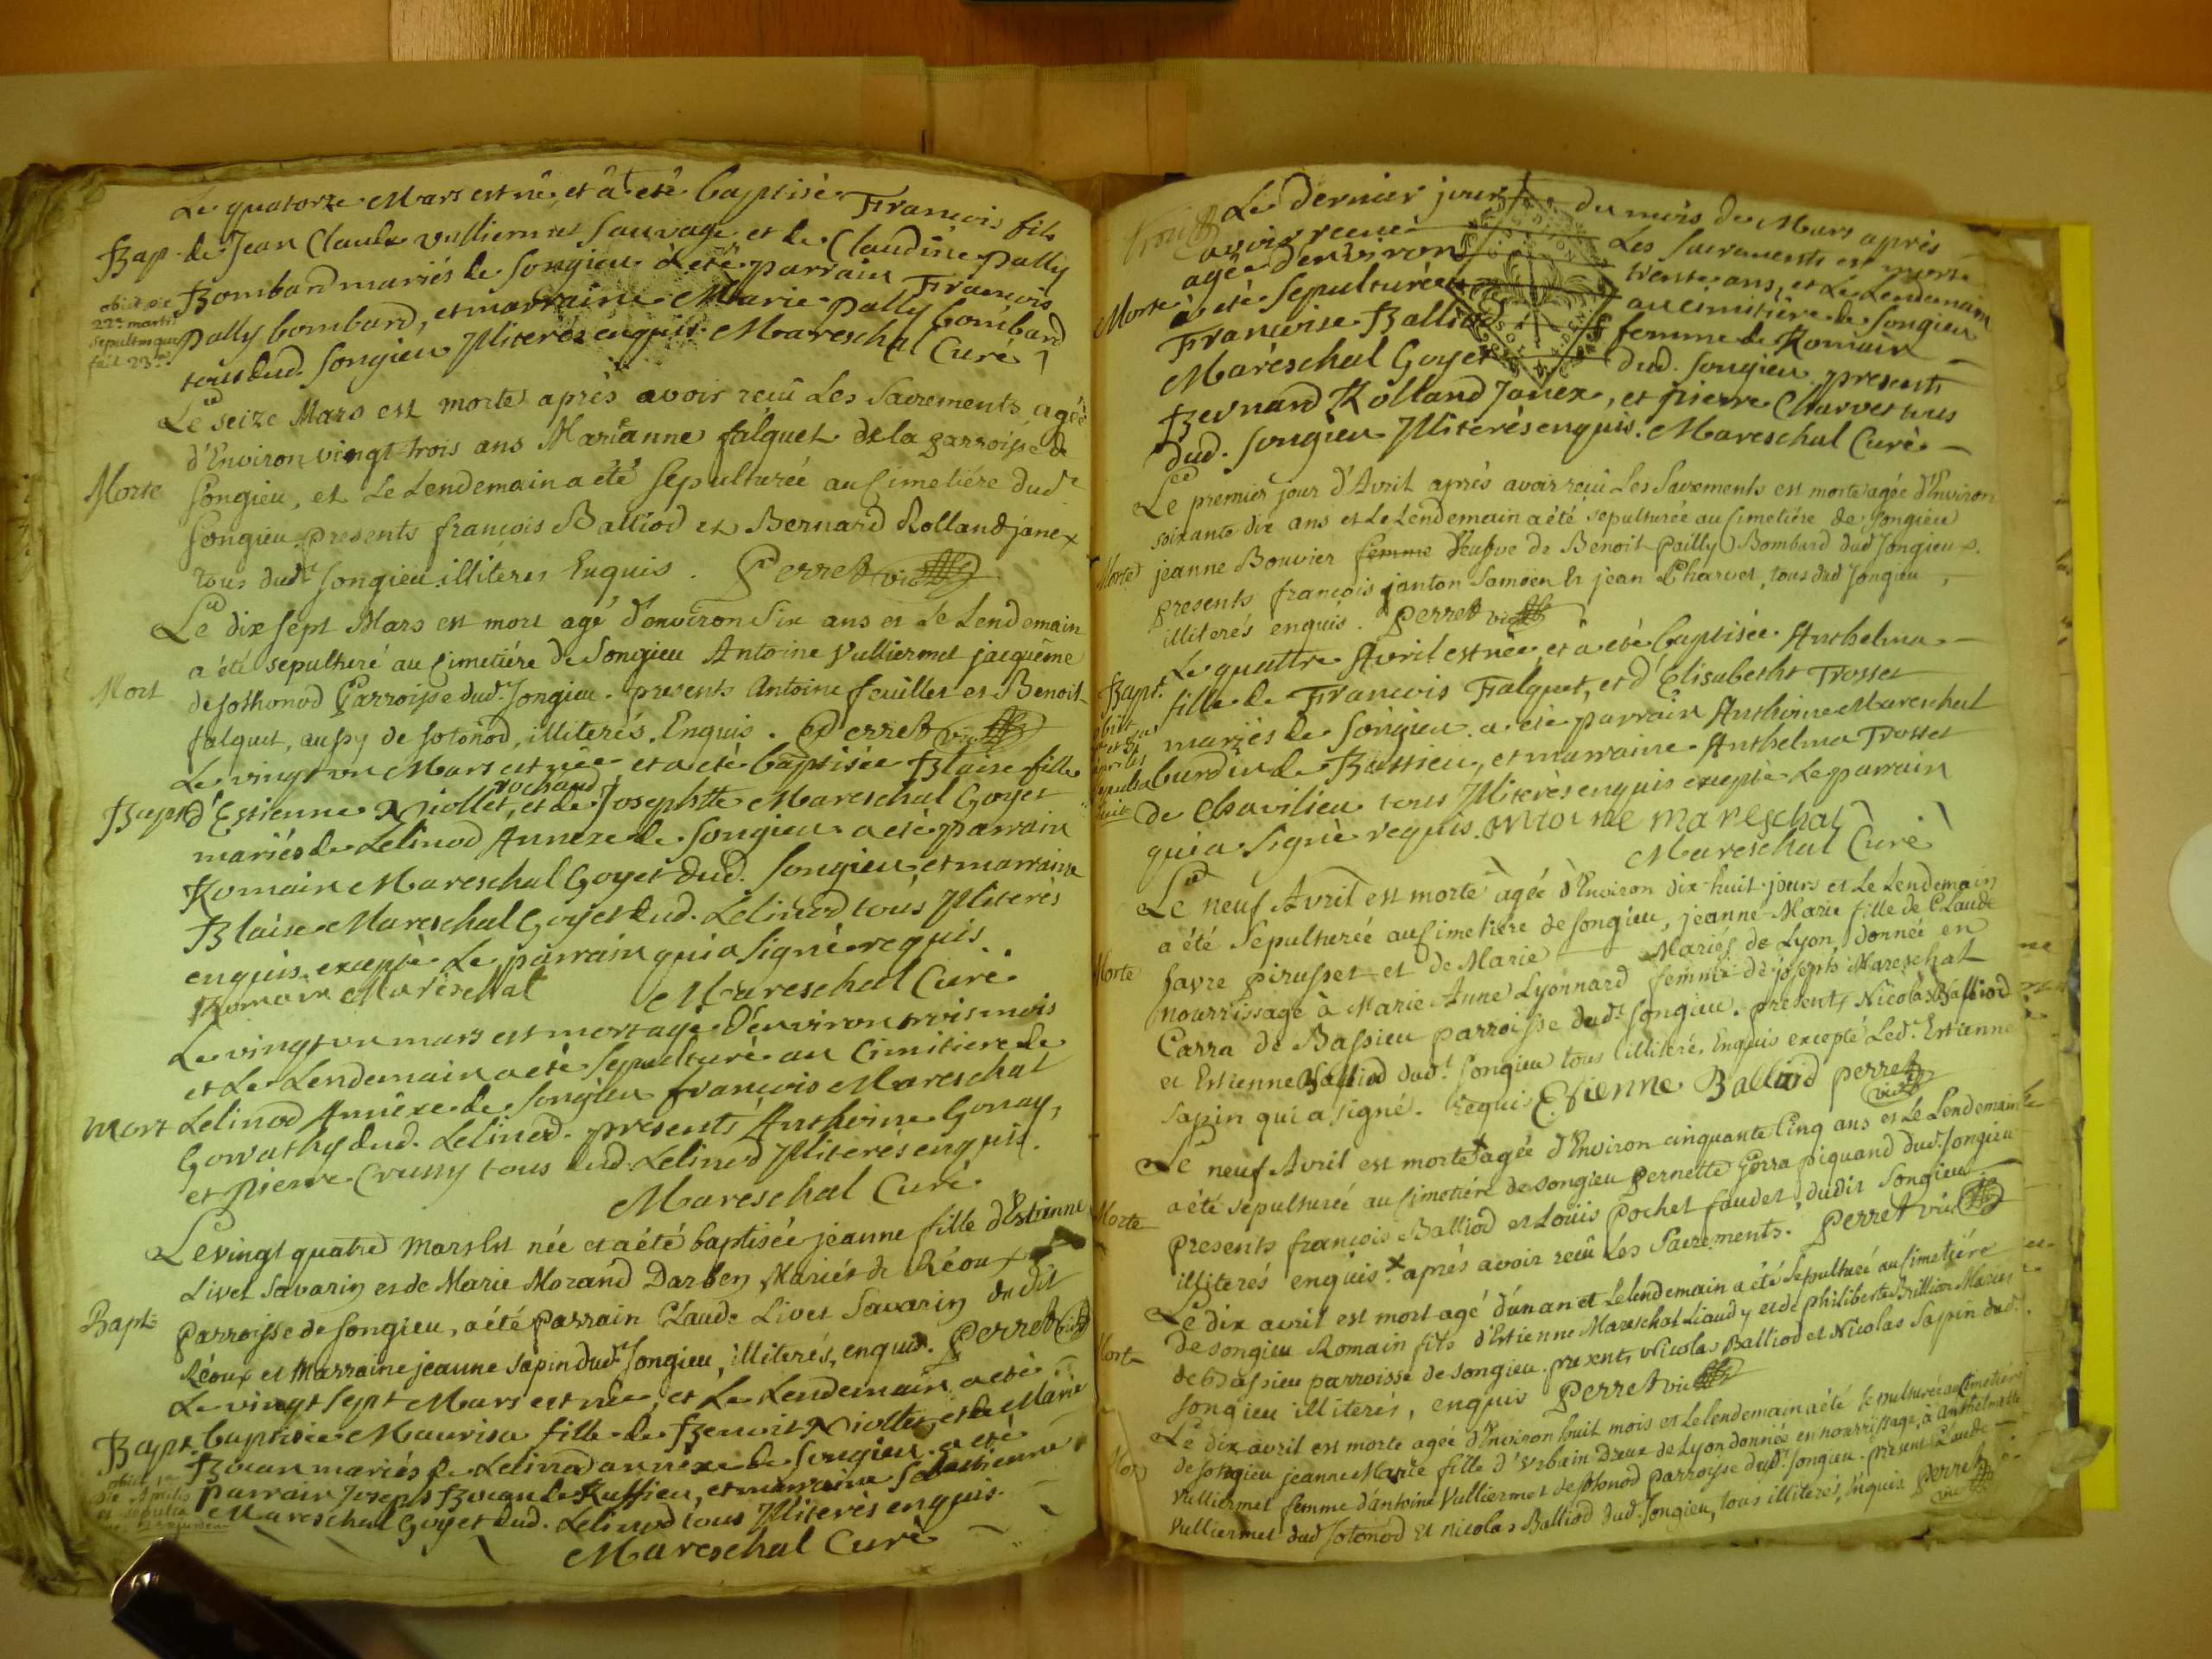 Le quatorze Mars est né et â eté baptisé François fils
Bap. de Jean Claude vulliermet Sauvage et de Claudine pally
Bombard mariés de Songieu â eté parrain François
pally bombard, et marraine Marie pally bombard
tous dud. Songieu Illiterés enquis. Mareschal Curé
obiit die
22a martii
sepultusque
fuit 23a
Le seize Mars est morte aprés avoir reçû Les Sacrements agée
d'Environ vingt-trois ans Marianne falquet de la parroisse de
Morte Songieu, et Le Lendemain a été Sepulturée au Cimetiére dudt
Songieu. presents françois Balliod et Bernard Rolland janex
tous dudt Songieu illiterés Enquis. Perret vic
Le dix sept Mars est mort agé d'environ Six ans et Le Lendemain
a été sepulturé au Cimetiére de Songieu Antoine Vulliermet jacquême
Mort de Sothonod Parroisse dud. Songieu. presents Antoine feuillet et Benoit
falquet, aussy de Sotonod, illiterés, Enquis. Perret vic
Le vingt un Mars est née et a eté baptisée Blaise fille
rochaud
Bapt. d'Estienne Niollet, et de Josephtte Mareschal Goyet
mariés de Lelinod Annexe de Songieu a eté parrain
Romain Mareschal Goyet dud. Songieu et marraine
Blaise Mareschal Goyet dud. Lelinod tous Illiterés
enquis excepté Le parrain qui a signé requis.
Romain Mareschal Mareschal Curé
Le vingt un mars est mort agé d'environ trois mois
et Le Lendemain a eté Sepulturé au Cimitiere de
Mort Lelinod Annexe de Songieu françois Mareschal
dud. Lelinod. présents Anthoine Gonay,
et pierre tous dud. Lelinod Illiterés enquis.
Mareschal Curé
Le vingt quatre Mars Est née et a été baptisée jeanne fille d'Estienne
Livet Savarin et de Marie Morand Darben Mariés de Réoux
Bapt. Parroisse de Songieu, a été Parrain Claude Livet Savarin dudit
Réoux et Marraine jeanne Sapin dudt Songieu, illiterés, enquis. Perret vic
Le vingt Sept Mars est née, et Le Lendemain a eté
Bapt. baptisée Maurisa fille de Benoit Niollet, et de Marie
Bouan mariés de Lelinod annéxe de Songieu. a eté
parrain Joseph Bouan de Ruffieu, et marraine Sebastienne
Mareschal Goyet dud. Lelinod tous Illiterés enquis
Mareschal Curé
Le dernier jour du mois de Mars aprés
avoir receu Les Sacrements est morte
agée d'environ trente ans, et Le Lendemain
Morte â eté Sepulturée au cimitiére de Songieu
Françoise Balliod femme de Romain
Maréschal Goyet dud. Songieu presents
Bernard Rolland Janex, et pierre Charvet tous
dud. Songieu Illiterés enquis. Mareschal Curé
Le premier jour d'Avril aprés avoir reçû Les Sacrements est morte agée d'Environ
soixante dix ans et Le Lendemain a été sepulturée au Cimetiére de Songieu
Morte jeanne Bouvier femme Veufve de Benoit Pailly Bombard dud Songieu
presents françois janton Samoen Et jean Charvet, tous dud Songieu,
illiterés enquis. Perret vic
Le quattre Avril est née et a eté baptisée Anthelma
Bapt. fille de François Falquet, et d'Elisabetht Trosset
mariés de Songieu. a eté parrain Anthoine Mareschal
burdin de Bassieu, et marraine Anthelma Trosset
de Chavilieu tous Illiterés enquis excepté Le parrain
qui a signé requis. Antoine Mareschal
Mareschal Curé
Le neuf Avril est morte agée d'Environ dix-huit jours et Le Lendemain
a été Sepulturée au Cimetiére de Songieu, jeanne Marie fille de Claude
Morte favre et de Marie Mariés de Lyon, donnée en
nourrissage à Marie Anne Lyonnard femme de joseph Mareschal
Carra de Bassieu parroisse dudt Songieu. presents Nicolas Balliod
et Estienne Balliod dudt Songieu tous illiteré, Enquis excepté Led. Estienne
Sapin qui a signé. Requis Etienne Balliod perret
vic
Le neuf Avril est morte x agée d'Environ cinquante Cinq ans et Le Lendemain
a été sepulturée au Cimetiére de songieu Pernette Gorra piquand dud. Songieu
Morte Presents françois Balliod et Louis Pochet faudet, dudit Songieu
illiterés enquis. x aprés avoir reçû Les Sacrements. Perret vic
Le dix avril est mort agé d'un an et Le lendemain a été Sepulturé au Cimetiére
Mort de songieu Romain fils d'Estienne Mareschal Liaudy et de Philiberte Brillion Mariés
de Bassieu parroisse de songieu. presents Nicolas Balliod et Nicolas Sapin dud.
songieu illiterés, enquis Perret vic
Le dix avril est morte agée d'Environ huit mois et Le lendemain a été Sepulturée au Cimetiére
de songieu jeanne Marie fille d'Urbain Dreux de Lyon donnée en nourrissage, à Anthelmette
Vulliermet femme d'antoine Vulliermet de Sotonod Parroisse dudt Songieu. présents Claude
Vulliermet dud Sotonod Et Nicolas Balliod dud. Songieu, tous illiterés, Enquis Perret
vic